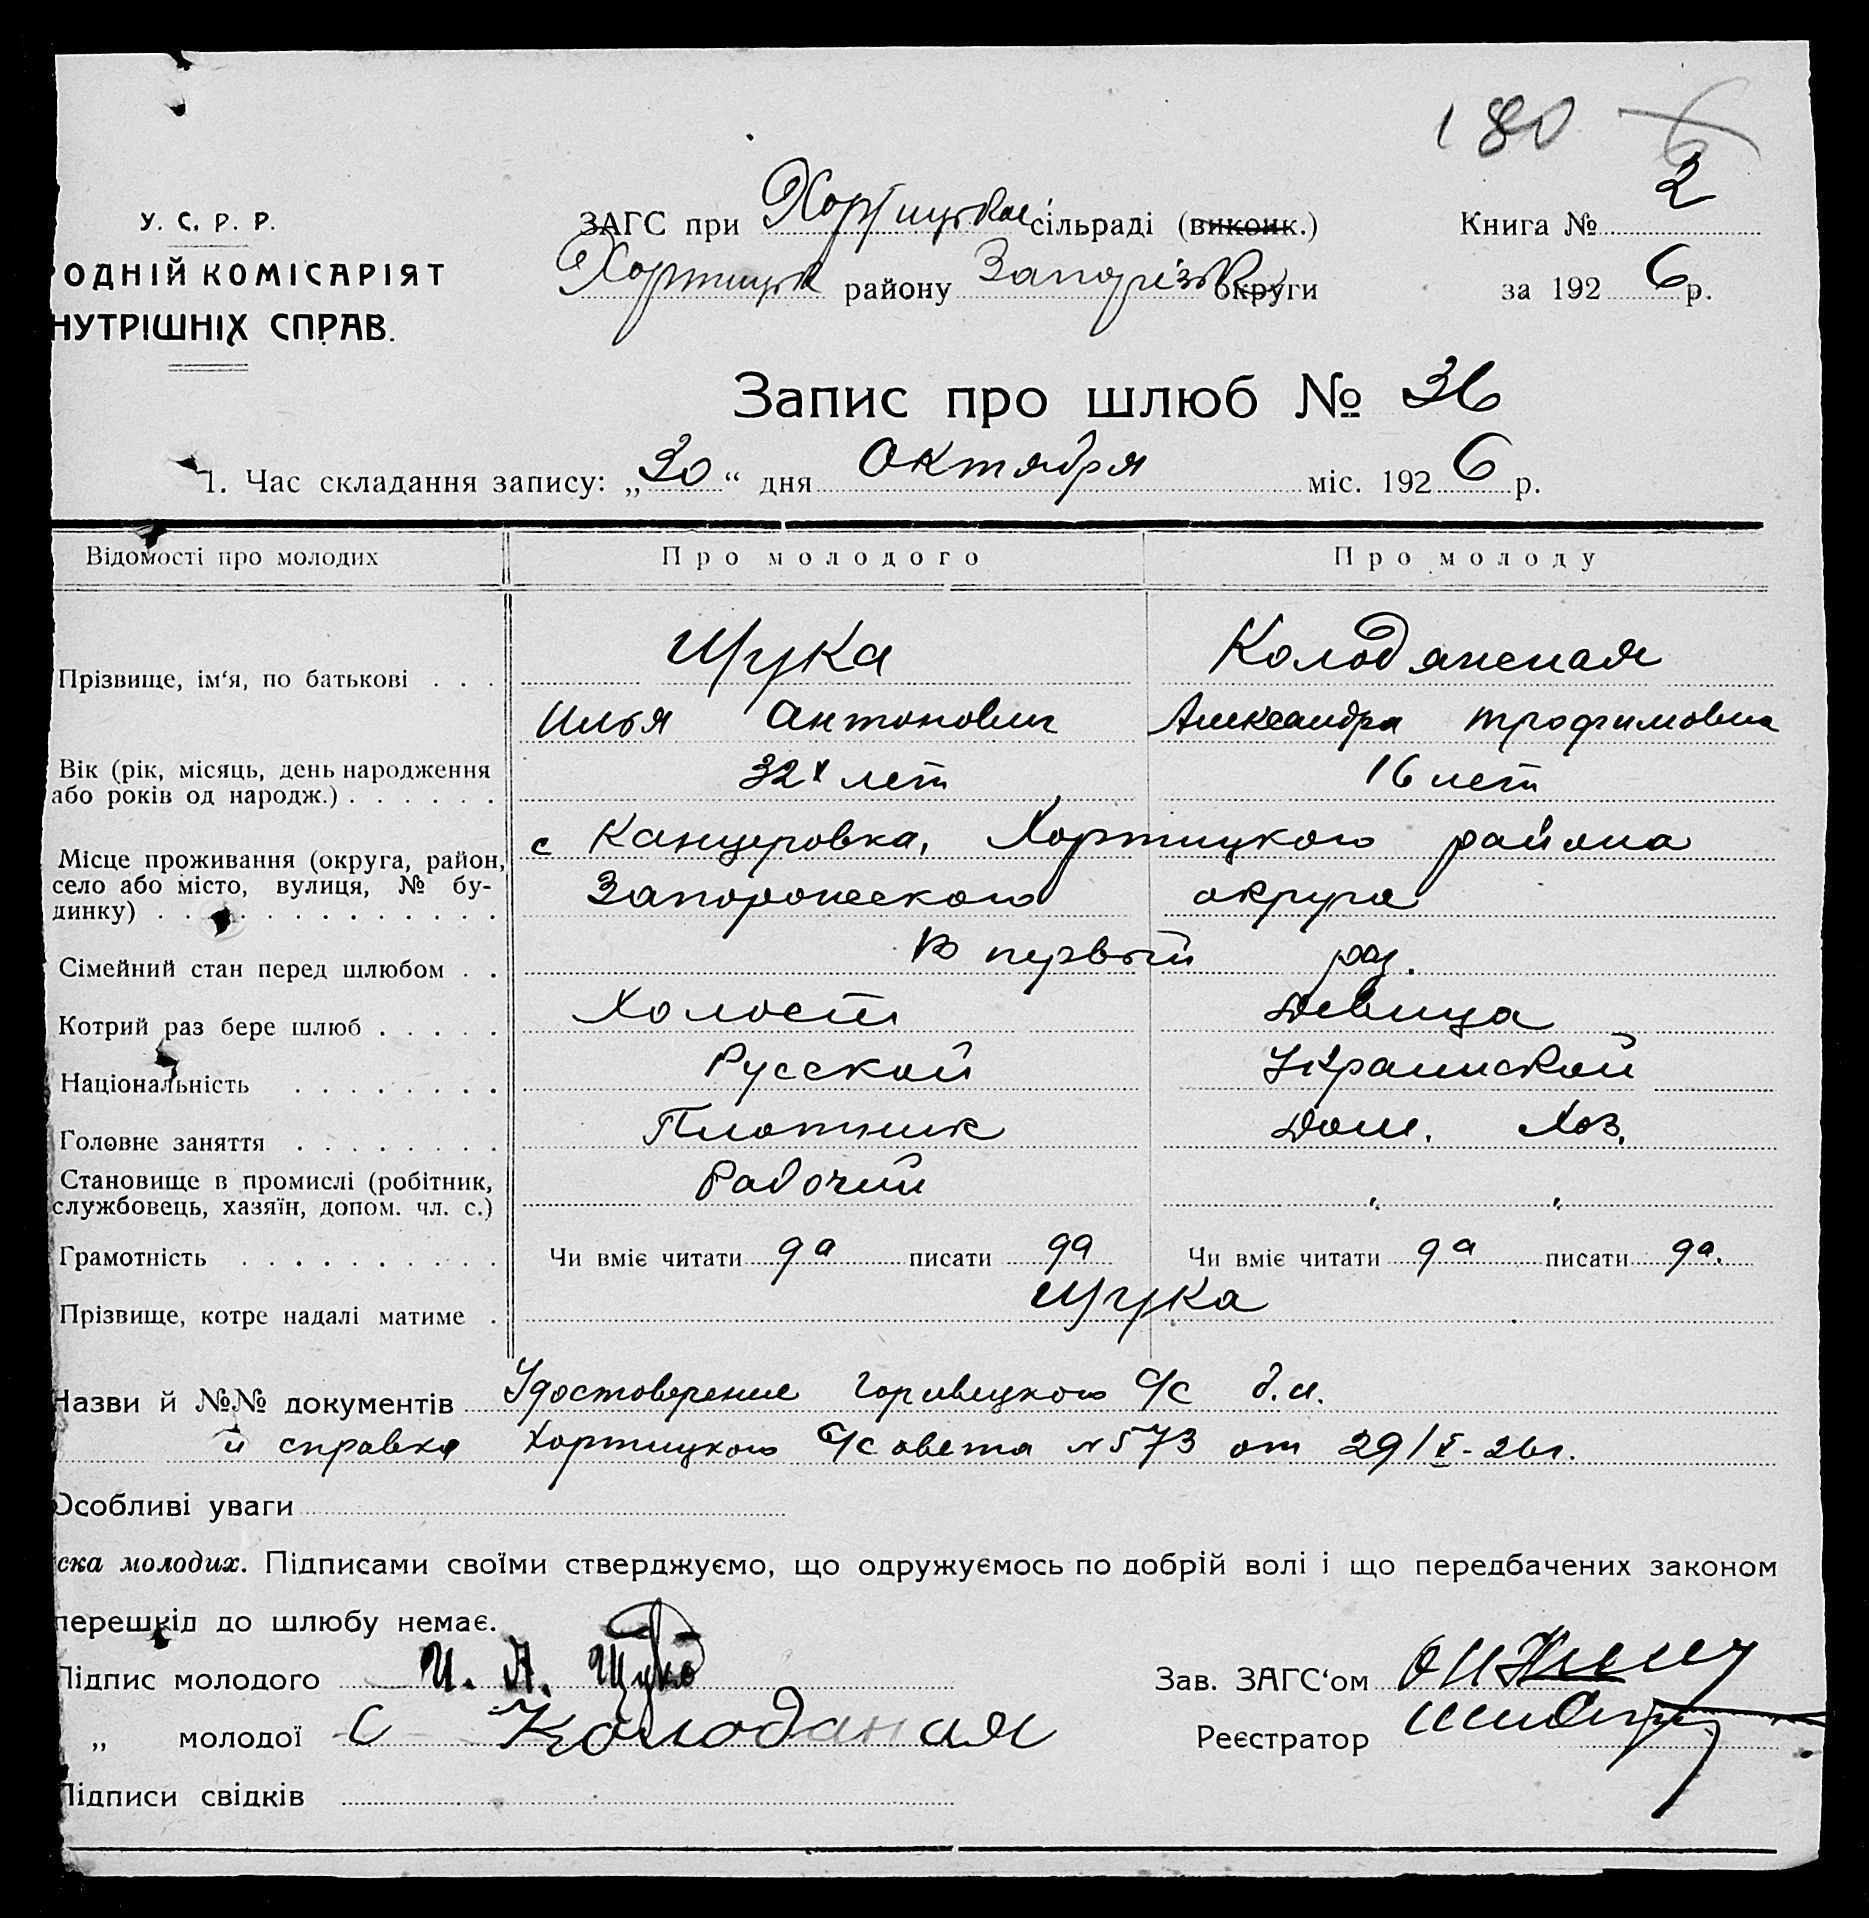 180
У. С. Р. Р.
ОДНІЙ КОМІСАРІЯТ
НУТРІШНІХ СПРАВ.
ЗАГС при Хортицькае сільраді (виконк.)
Хортицьк району Запорізьк округи
Книга № 2
за 192 6 р.
Запис про шлюб № 36
1. Час складання запису: „30“ дня Октября міс. 192 6 р.
Відомості про молодих Про молодого Про молоду
Щука Колодянская
Прізвище, ім‘я, по батькові . . .
Илья Антонович Александра Трофимовна
Вік (рік, місяць, день народження
або років од народж.) . . . . . . 32х лет 16 лет
с Канцеровка, Хортицкого района
Місце проживання (округа, район,
село або місто, вулиця, № бу-
динку) . . . . . . . . . . . . . Запорожского округа
Сімейний стан перед шлюбом . . В первый раз.
Котрий раз бере шлюб . . . . . Холост Девица
Національність . . . . . . . . Русской Украинской
Головне заняття . . . . . . . . Плотник Дом. Хоз.
Становище в промислі (робітник,
службовець, хазяїн, допом. чл. с.) Рабочий " "
Грамотність . . . . . . . . . . Чи вміє читати да писати да Чи вміє читати да писати да.
Прізвище, котре надалі матиме . Щука
Назви й №№ документів Удостоверение с/с
и справка Хортицкого с/совета №573 от 29/X-26г.
Особливі уваги
ска молодих. Підписами своїми стверджуємо, що одружуємось по добрій волі і що передбачених законом
перешкід до шлюбу немає.
Підпис молодого И. А. Щука
Зав. ЗАГС‘ом
„ молодої
Реєстратор
Підписи свідків